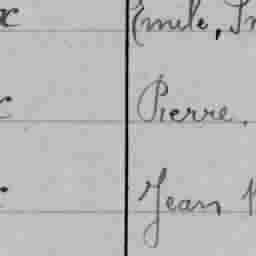 Emile,
Pierre.
Jean